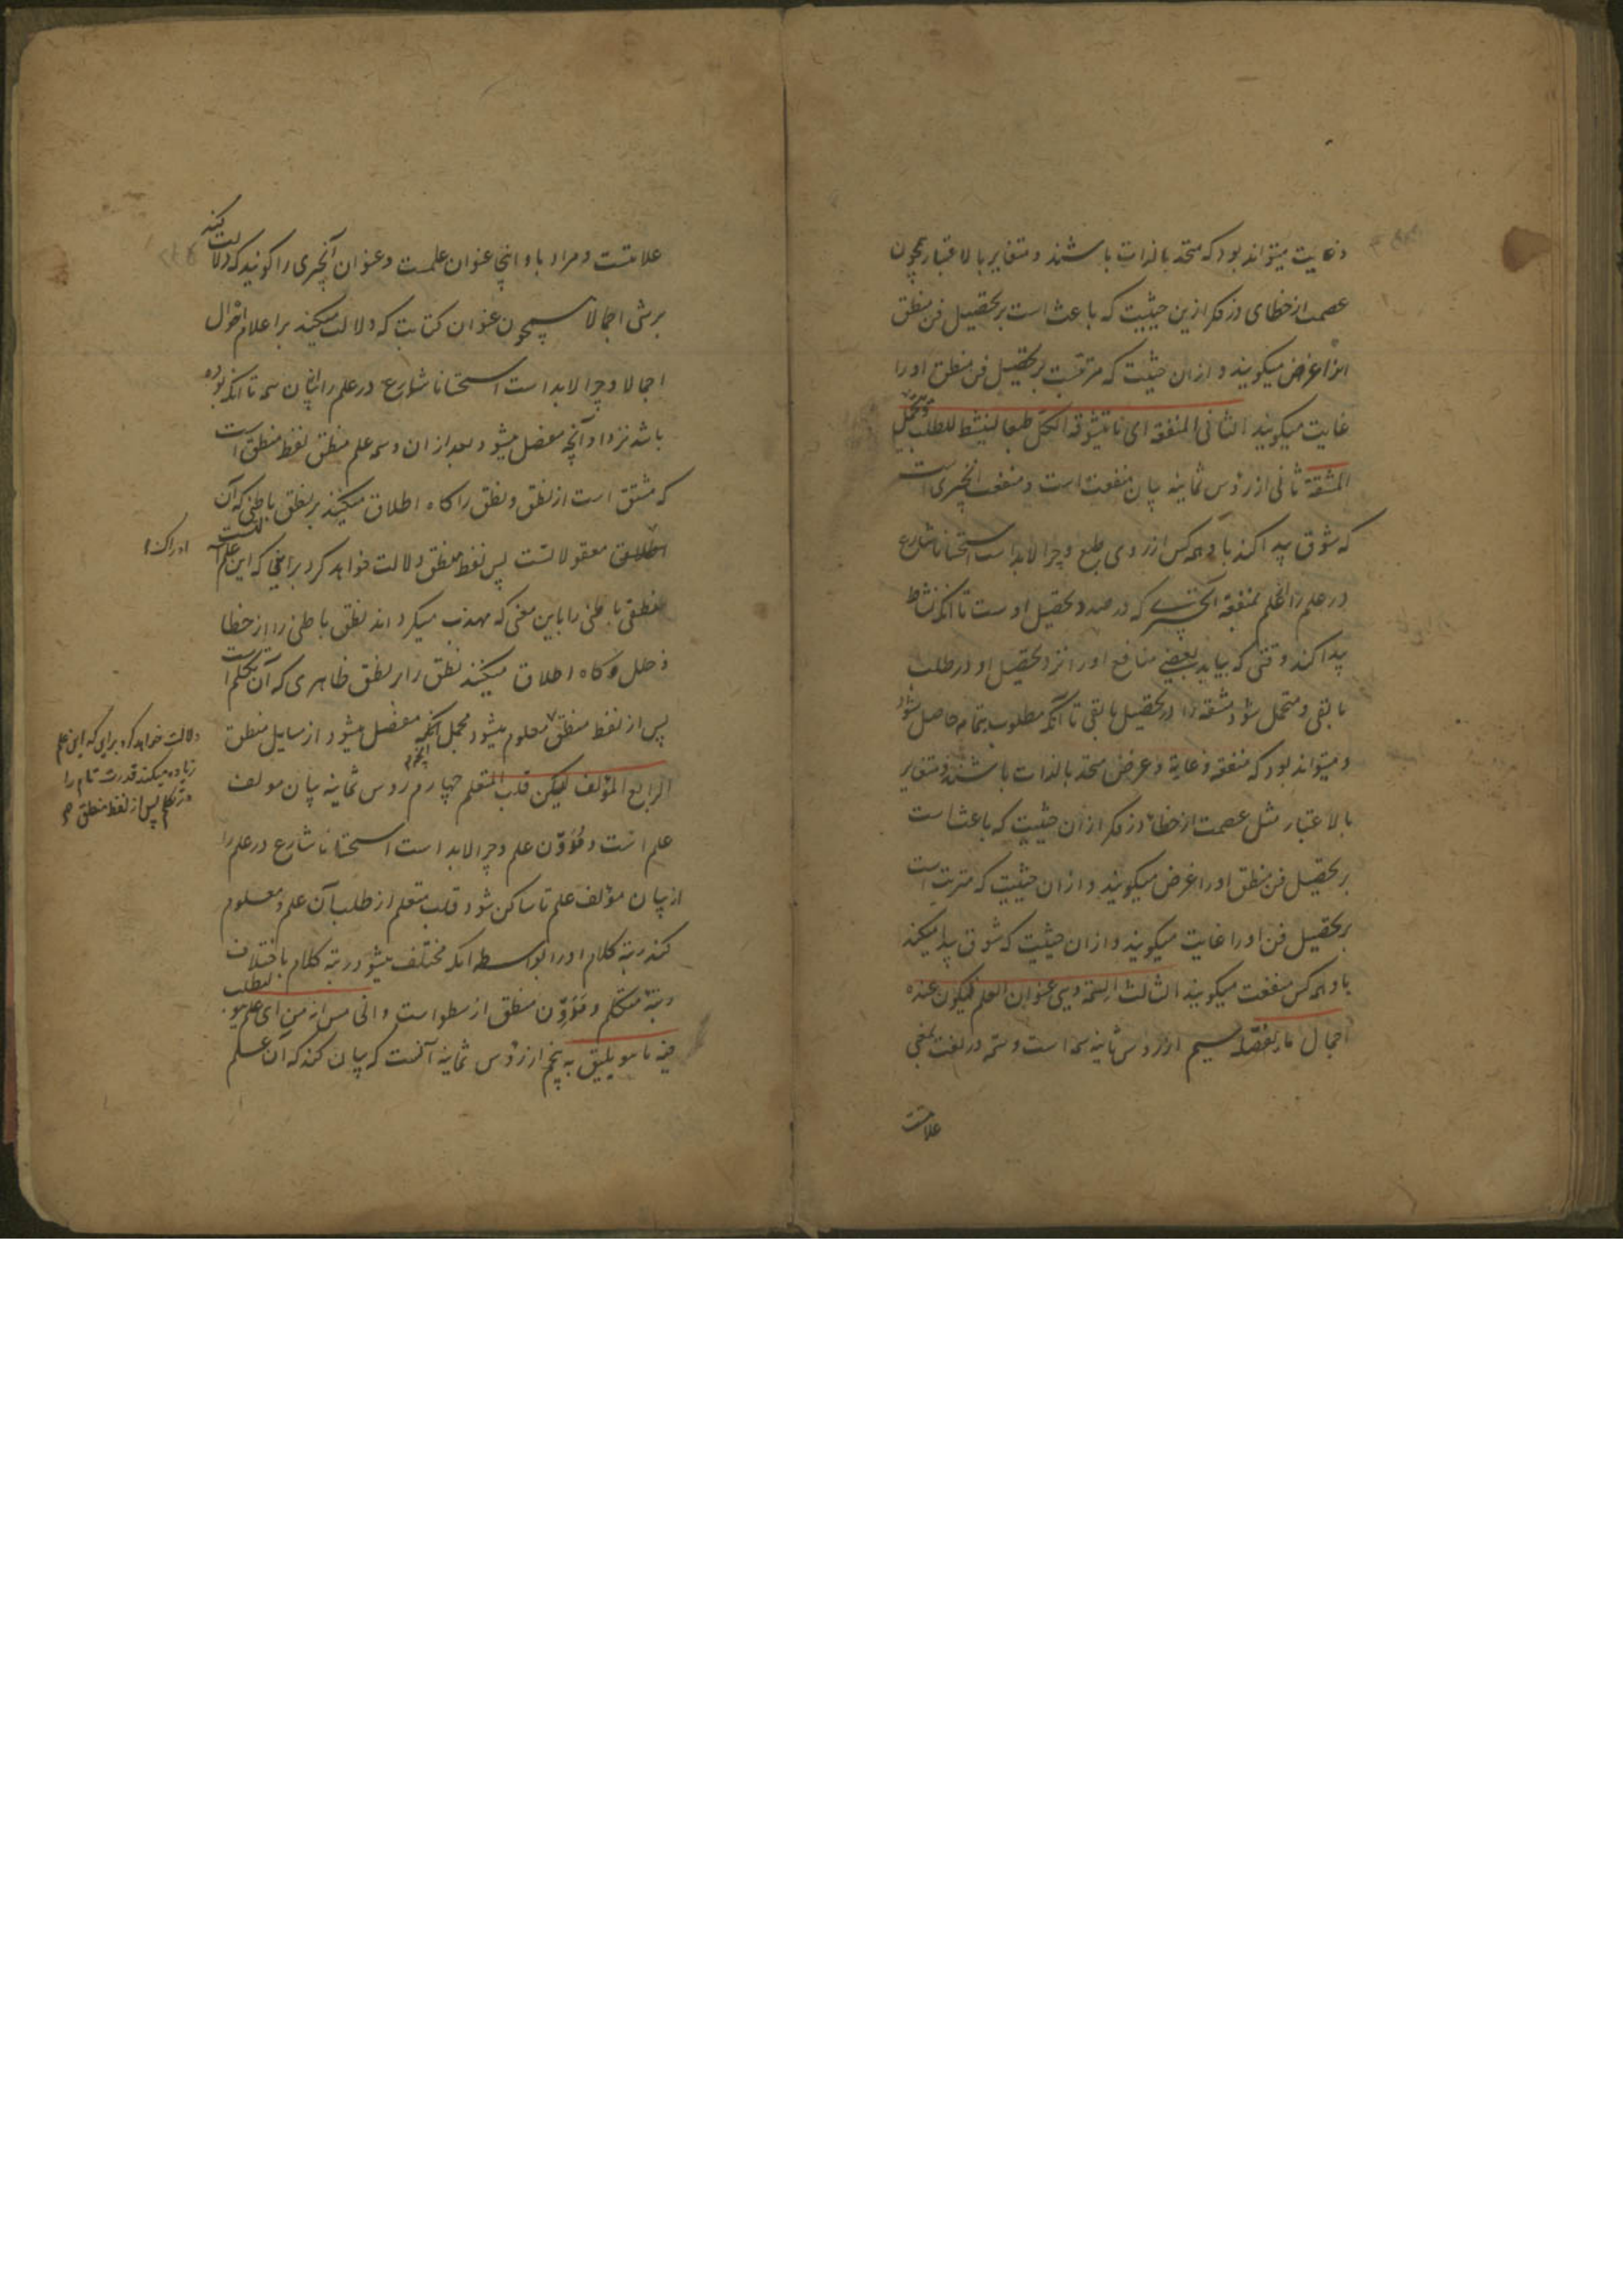 و غایت میتواند بود که متحد بالذات باشند و متغایر بالاعتبار همچون
عصمت از خطای در فکر ازین حیثیت که باعث است بر تحصیل فن منطق
انرا غرض میگویند و از ان حیثیت که مرتبست بر تحصیل فن منطق او را
غایت میگویند الثانی المنفعة ای ما یتشوقه الکل طبعا لینشط للطلب و یتحمل
المشقة ثانی از رؤس ثمانیه بیان منفعت است و منفعت انچیزی است
که شوق پیدا کند باو همه کس از روی طبع و چرا لابد است استحسانا شارع
در علم را العلم بمنفعة آنچیزی که در صدد تحصیل اوست تا انکه نشاط
پیدا کند وقتی که بیابد بعضی منافع او را نزد تحصیل او در طلب
ما بقی و متحمل شود مشقه را در تحصیل ما بقی تا آنکه مطلوب بتمام حاصل شود
و میتواند بود که منفعه و غایة و غرض متحد بالذات باشند و متغایر
بالاعتبار مثل عصمت از خطا در فکر از ان حیثیت که باعث است
بر تحصیل فن منطق او را غرض میگویند و از ان حیثیت که مترتب است
بر تحصیل فن او را غایت میگویند و از ان حیثیت که شوق پیدا میکند
باو همه کس منفعت میگویند الثالث السمة و هی عنوان العلم لیکون عنده
اجمال ما یفصله سیم از رؤس ثمانیه سمه است و سمه در لغت بمعنی
علامتست
علامتست و مراد باو اینجا عنوان علمست و عنوان آنچیزی را گویند که دلالت کند
بر شی اجمالا همچون عنوان کتابت که دلالت میکند بر اعلام احوال
اجمالا و چرا لابد است استحسانا شارع در علم را بیان سمه تا انکه بوده
باشد نزد او آنچه مفصل میشود بعد از ان و سمه علم منطق لفظ منطق است
که مشتق است از نطق و نطق را گاه اطلاق میکنند بر نطق باطنی که آن
ادراک
معقولاتست پس لفظ منطق دلالت خواهد کرد براینی که این علمیست
منطقی باطنی را باین معنی که مهذب میگرداند نطق باطنی را از خطا
و خلل و گاه اطلاق میکنند نطق را بر نطق ظاهری که آن تکلم است
دلالت خواهد کرد براینی که این علم
زیاده میکند قدرت تام را
در تکلم پس از لفظ منطق
پس از لفظ منطق معلوم میشود مجمل آنچه مفصل میشود از مسایل منطق
الرابع المؤلف لیسکن قلب المتعلم چهارم از رؤس ثمانیه بیان مولف
علم است و مدون علم و چرا لابد است استحسانا شارع در علم را
از بیان مؤلف علم تا ساکن شود قلب متعلم از طلب آن علم و معلوم
کند رتبة کلام او را بواسطه انکه مختلف میشود رتبة کلام باختلاف
رتبة متکلم و مدون منطق ارسطو است و الخامس انه من ای علم هو لیطلب
فیه ما هو یلیق به پنجم از رؤس ثمانیه آنست که بیان کند که آن علم